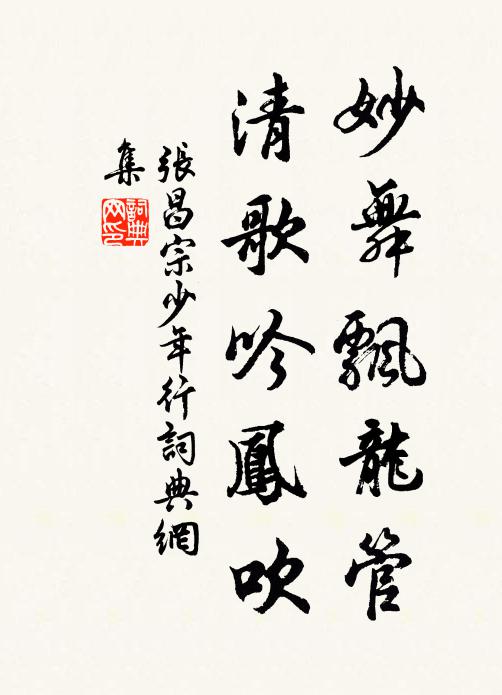 妙舞飄龍管
清歌吟鳳吹
張昌宗少年行詞典網
集
詞典网印